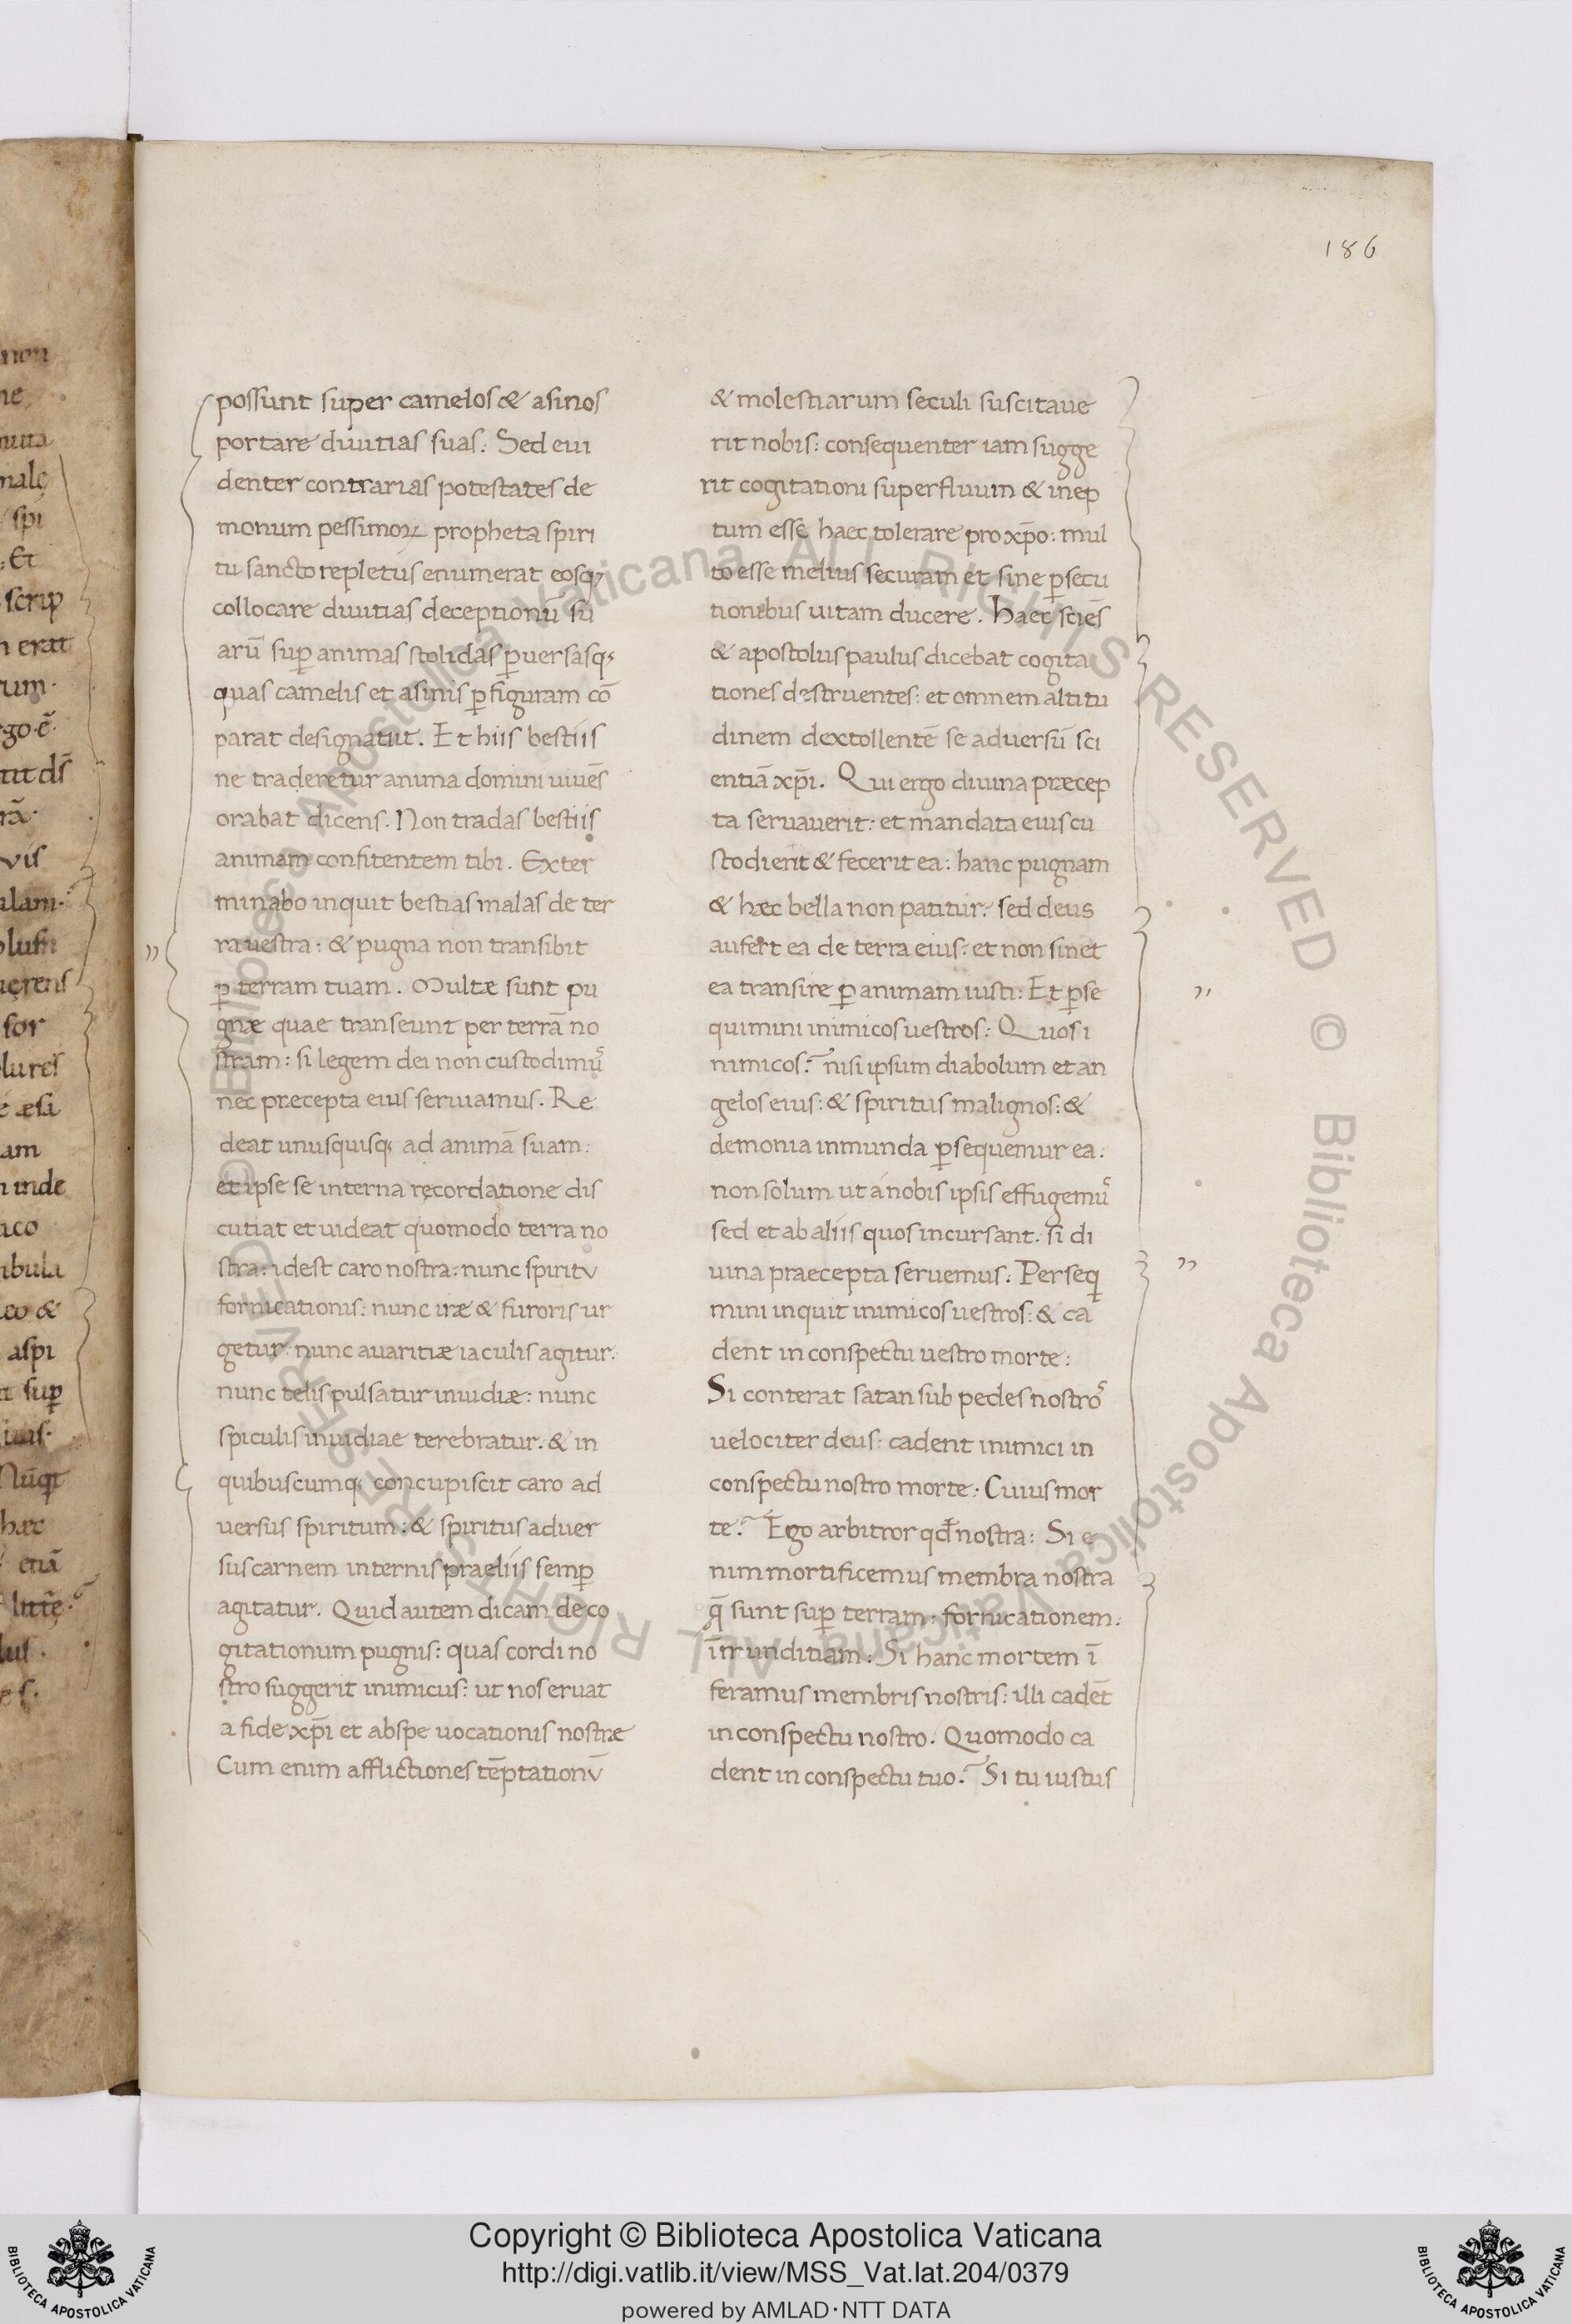 186
possunt super camelos & asinos
portare diuitias suas: Sed eui
denter contrarias potestates de
monum pessimoꝝ propheta spiri
tu sancto repletus enumerat eosq;
collocare diuitias deceptionū su
arū suꝑ animas stolidas ꝑuersasq;
quas camelis et asinis ꝑ figuram cō
parat designatut. Et hiis bestiis
ne traderetur anima domini uiuēs
orabat dicens. Non tradas bestiis
animam confitentem tibi. Exter
minabo inquit bestias malas de ter
ra uestra: & pugna non transibit
ꝑ terram tuam. Multæ sunt pu
gnæ quae transeunt per terrā no
stram: si legem dei non custodimuꝰ
nec præcepta eius seruiamus. Re
deat unusquisq; ad animā suam:
et ipse se interna recordatione dis
cutiat et uideat quomodo terra no
stra: idest caro nostra: nunc spiritu
fornicationis: nunc iræ & furoris ur
getur: nunc auaritiæ iaculis agitur:
nunc telis pulsatur inuidiæ: nunc
spiculis inuidiae terebratur. & in
quibuscumq; concupiscit caro ad
uersus spiritum: & spiritus aduer
sus carnem internis praeliis semꝑ
agitatur. Quid autem dicam de co
gitationum pugnis: quas cordi no
stro suggerit inimicus: ut nos eruat
a fide xp̄i et abspe uocationis nostræ
Cum enim afflictiones tēptationū
& molestiarum seculi suscitaue
rit nobis: consequenter iam sugge
rit cogitationi superfluum & inep
tum esse haec tolerare pro xp̄o: mul
to esse melius securam et sine ꝑsecu
tionibus uitam ducere. Haec sciēs
& apostolus paulus dicebat cogita
tiones destruentes: et omnem altitu
dinem dextollentē se aduersū sci
entiā xp̄i. Qui ergo diuina præcep
ta seruauerit: et mandata eius cu
stodierit & fecerit ea: hanc pugnam
& hæc bella non patitur: sed deus
aufert ea de terra eius: et non sinet
ea transire ꝑ animam iusti: Et ꝑse
quimini inimicos uestros: Quos i
nimicos? nisi ipsum diabolum et an
gelos eius: & spiritus malignos: &
demonia inmunda ꝑsequemur ea:
non solum ut á nobis ipsis effugemuꝰ
sed et ab aliis quos incursant: si di
uina praecepta seruemus: Perseq
mini inquit inimicos uestros: & ca
dent in conspectu uestro morte:
Si conterat satan sub pedes nostroˢ
uelociter deus: cadent inimici in
conspectu nostro morte: Cuius mor
te? Ego arbitror qđ nostra: Si e
nim mortificemus membra nostra
q̄ sunt suꝑ terram: fornicationem:
īmunditiam: Si hanc mortem ī
feramus membris nostris: illi cadēt
in conspectu nostro. Quomodo ca
dent in conspectu tuo? Si tu iustus
Copyright © Biblioteca Apostolica Vaticana
http://digi.vatlib.it/view/MSS_Vat.lat.204/0379
powered by AMLAD·NTT DATA
BIBLIOTECA APOSTOLICA VATICANA
BIBLIOTECA APOSTOLICA VATICANA